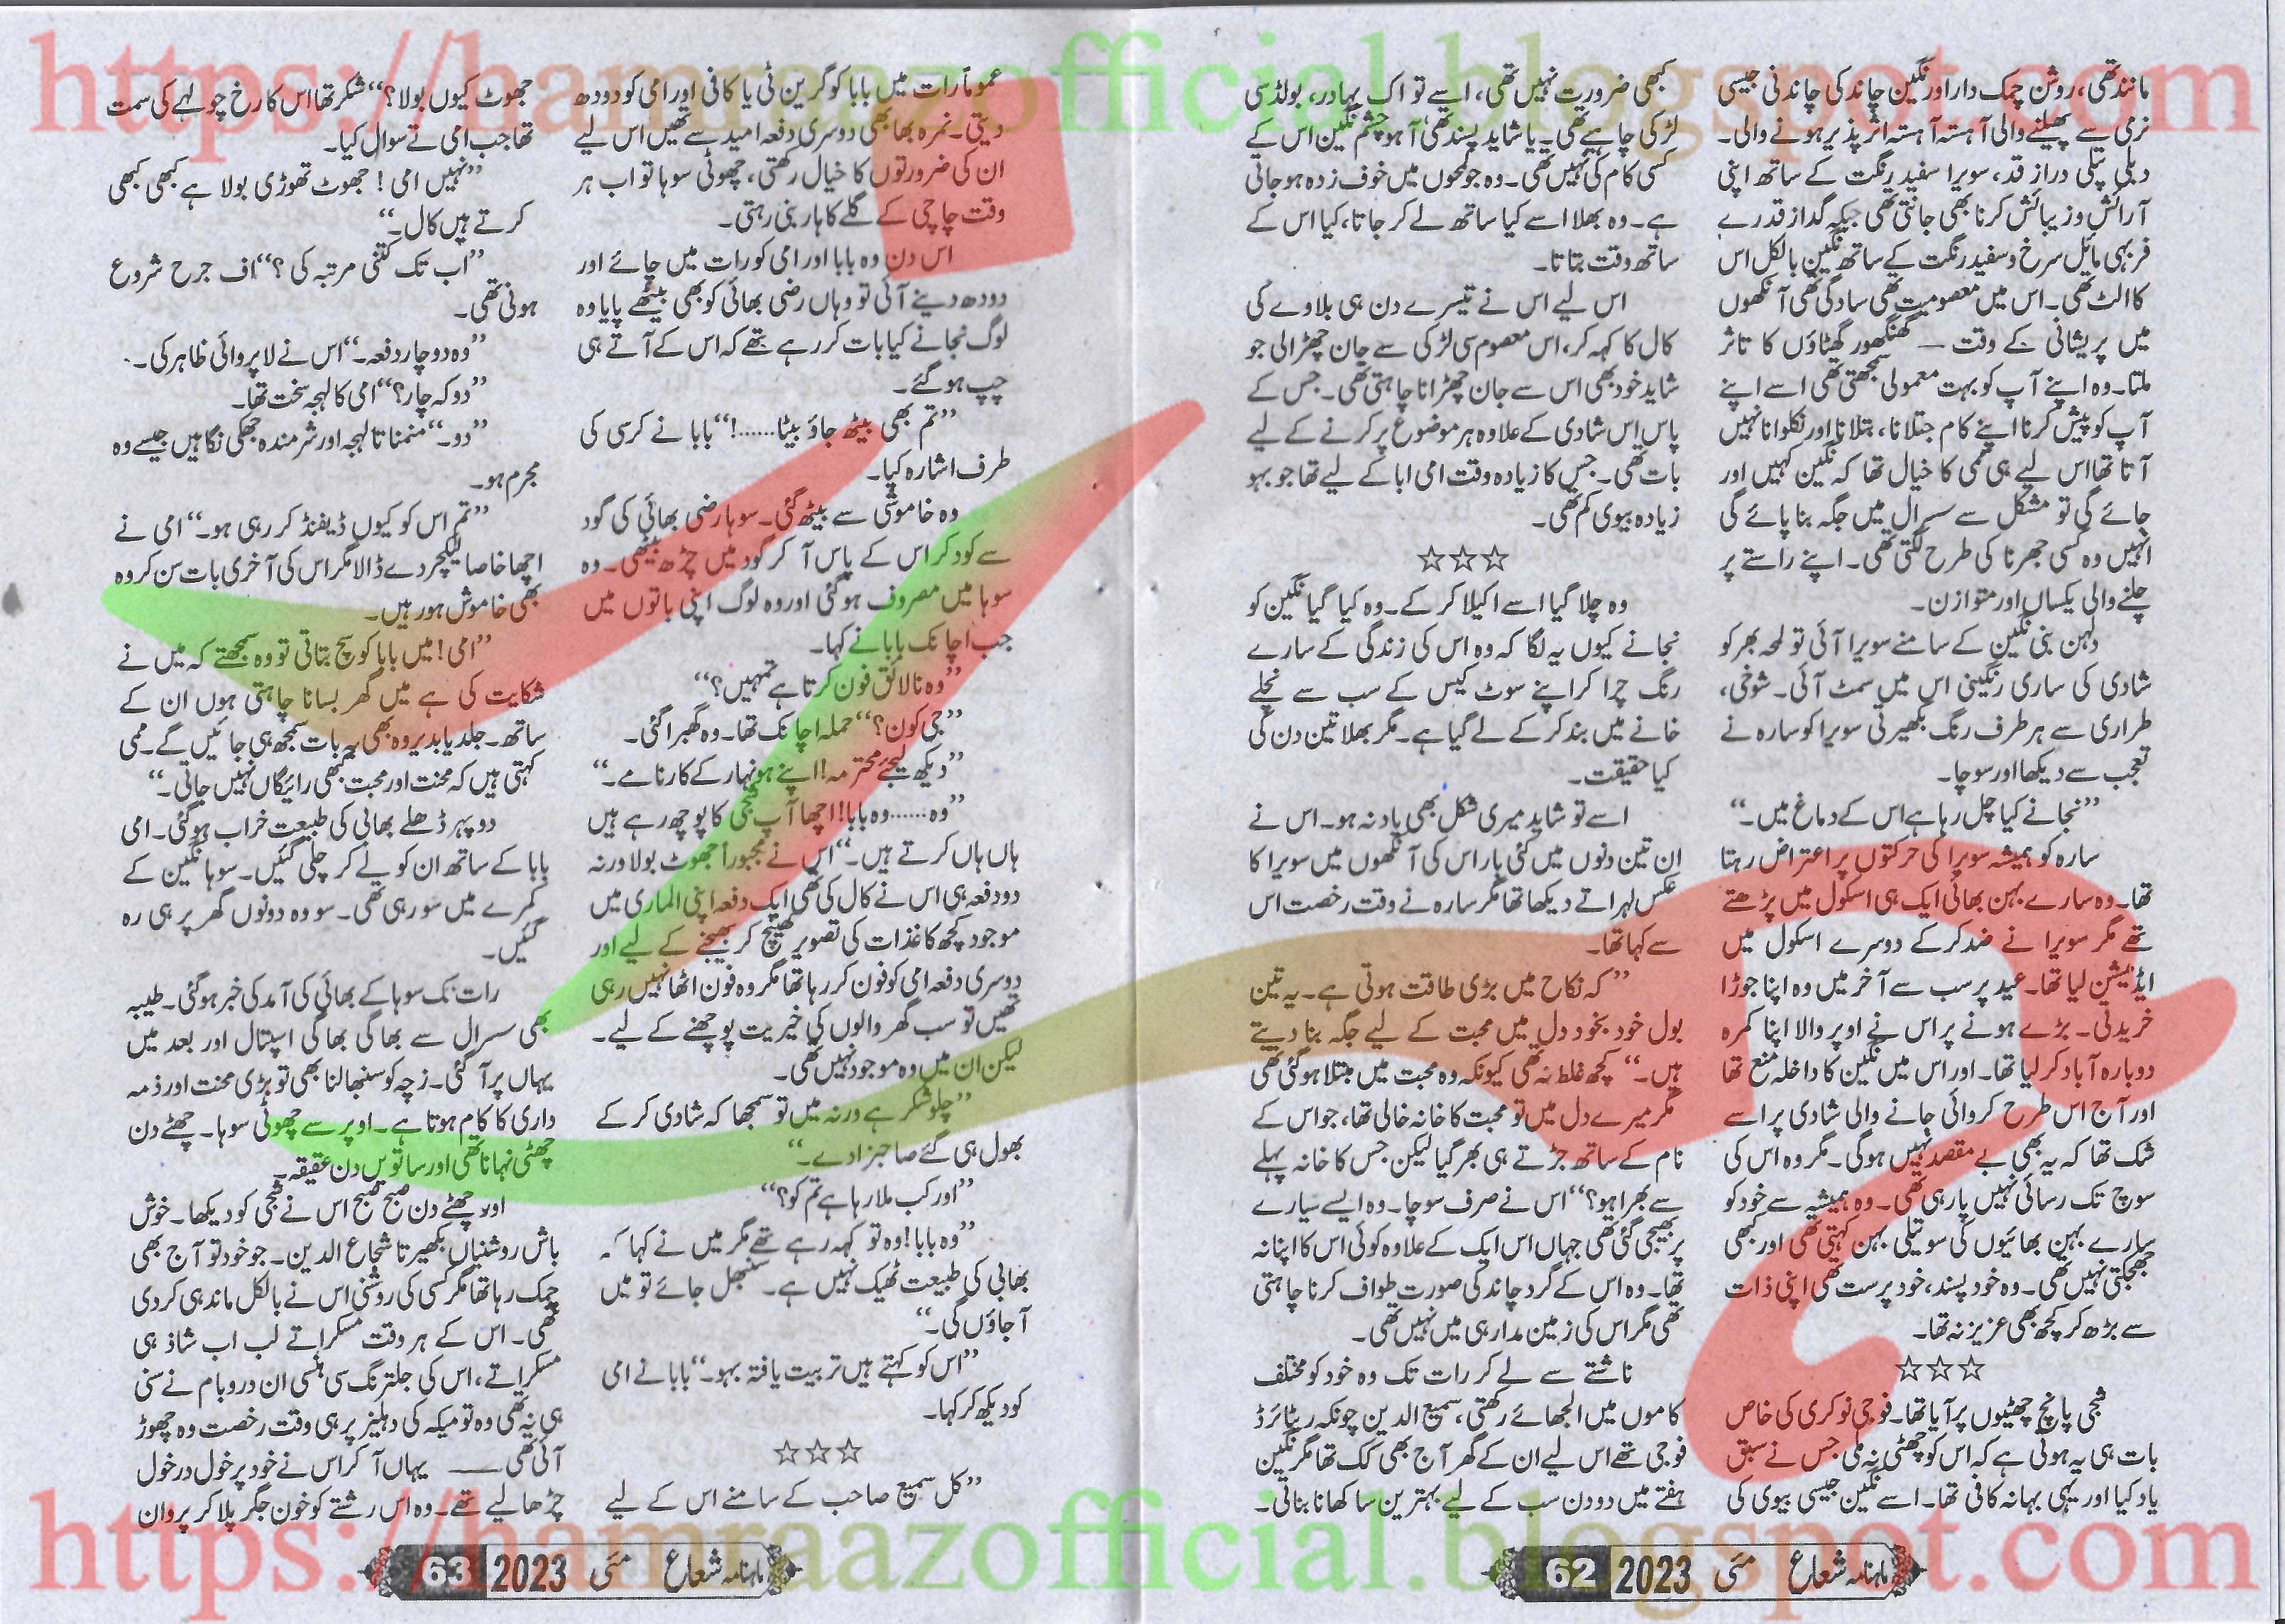 https://hamraazofficial.blogspot.com
مانند تھی، روشن چمک دار اور نگین چاند کی چاندنی جیسی
نرمی سے پھیلنے والی آہستہ آہستہ اثر پذیر ہونے والی۔
دبلی پتلی دراز قد، سویرا سفید رنگت کے ساتھ اپنی
آرائش و زیبائش کرنا بھی جانتی تھی جبکہ گداز قدرے
فربہی مائل سرخ و سفید رنگت کے ساتھ نگین بالکل اس
کا الٹ تھی۔ اس میں معصومیت تھی سادگی تھی آنکھوں
میں پریشانی کے وقت — گھنگھور گھٹاؤں کا تاثر
ملتا۔ وہ اپنے آپ کو بہت معمولی سمجھتی تھی اسے اپنے
آپ کو پیش کرنا اپنے کام جتلانا، بتلانا اور نکلوانا نہیں
آتا تھا اس لیے ہی ممی کا خیال تھا کہ نگین کہیں اور
جائے گی تو مشکل سے سسرال میں جگہ بنا پائے گی
انہیں وہ کسی جھرنا کی طرح لگتی تھی۔ اپنے راستے پر
چلنے والی یکساں اور متوازن۔
دلہن بنی نگین کے سامنے سویرا آئی تو لمحہ بھر کو
شادی کی ساری رنگینی اس میں سمٹ آئی۔ شوخی،
طراری سے ہر طرف رنگ بکھیرتی سویرا کو سارہ نے
تعجب سے دیکھا اور سوچا۔
”نجانے کیا چل رہا ہے اس کے دماغ میں۔“
سارہ کو ہمیشہ سویرا کی حرکتوں پر اعتراض رہتا
تھا۔ وہ سارے بہن بھائی ایک ہی اسکول میں پڑھتے
تھے مگر سویرا نے ضد کر کے دوسرے اسکول میں
ایڈمیشن لیا تھا۔ عید پر سب سے آخر میں وہ اپنا جوڑا
خریدتی۔ بڑے ہونے پر اس نے اوپر والا اپنا کمرہ
دوبارہ آباد کر لیا تھا۔ اور اس میں نگین کا داخلہ منع تھا
اور آج اس طرح کروائی جانے والی شادی پر اسے
شک تھا کہ یہ بھی بے مقصد نہیں ہوگی۔ مگر وہ اس کی
سوچ تک رسائی نہیں پا رہی تھی۔ وہ ہمیشہ سے خود کو
سارے بہن بھائیوں کی سوتیلی بہن کہتی تھی اور کبھی
جھجکتی نہیں تھی۔ وہ خود پسند، خود پرست تھی اپنی ذات
سے بڑھ کر کچھ بھی عزیز نہ تھا۔
☆☆☆
شجی پانچ چھٹیوں پر آیا تھا۔ فوجی نوکری کی خاص
بات ہی یہ ہوتی ہے کہ اس کو چھٹی نہ ملی جس نے سبق
یاد کیا اور یہی بہانہ کافی تھا۔ اسے نگین جیسی بیوی کی
کبھی ضرورت نہیں تھی، اسے تو اک بہادر، بولڈ سی
لڑکی چاہیے تھی۔ یا شاید پسند تھی، آہو چشم نگین اس کے
کسی کام کی نہیں تھی۔ وہ جو لمحوں میں خوف زدہ ہو جاتی
ہے۔ وہ بھلا اسے کیا ساتھ لے کر جاتا، کیا اس کے
ساتھ وقت بتاتا۔
اس لیے اس نے تیسرے دن ہی بلاوے کی
کال کا کہہ کر، اس معصوم سی لڑکی سے جان چھڑالی جو
شاید خود بھی اس سے جان چھڑانا چاہتی تھی۔ جس کے
پاس اس شادی کے علاوہ ہر موضوع پر کرنے کے لیے
بات تھی۔ جس کا زیادہ وقت امی ابا کے لیے تھا جو بہو
زیادہ بیوی کم تھی۔
☆☆☆
وہ چلا گیا اسے اکیلا کر کے۔ وہ کیا گیا نگین کو
نجانے کیوں یہ لگا کہ وہ اس کی زندگی کے سارے
رنگ چرا کر اپنے سوٹ کیس کے سب سے نچلے
خانے میں بند کر کے لے گیا ہے۔ مگر بھلا تین دن کی
کیا حقیقت۔
اسے تو شاید میری شکل بھی یاد نہ ہو۔ اس نے
ان تین دنوں میں کئی بار اس کی آنکھوں میں سویرا کا
عکس لہراتے دیکھا تھا مگر سارہ نے وقت رخصت اس
سے کہا تھا۔
”کہ نکاح میں بڑی طاقت ہوتی ہے۔ یہ تین
بول خود بخود دل میں محبت کے لیے جگہ بنا دیتے
ہیں۔“ کچھ غلط نہ تھی کیونکہ وہ محبت میں مبتلا ہو گئی تھی
مگر میرے دل میں تو محبت کا خانہ خالی تھا، جو اس کے
نام کے ساتھ جڑتے ہی بھر گیا لیکن جس کا خانہ پہلے
سے بھرا ہو؟“ اس نے صرف سوچا۔ وہ ایسے سیارے
پر بھیجی گئی تھی جہاں اس ایک کے علاوہ کوئی اس کا اپنا نہ
تھا۔ وہ اس کے گرد چاند کی صورت طواف کرنا چاہتی
تھی مگر اس کی زمین مدار ہی میں نہیں تھی۔
ناشتے سے لے کر رات تک وہ خود کو مختلف
کاموں میں الجھائے رکھتی، سمیع الدین چونکہ ریٹائرڈ
فوجی تھے اس لیے ان کے گھر آج بھی کک تھا مگر نگین
ہفتے میں دو دن سب کے لیے بہترین سا کھانا بناتی۔
ماہنامہ شعاع مئی 2023 62
عموماً رات میں بابا کو گرین ٹی یا کافی اور امی کو دودھ
دیتی۔ نمرہ بھابھی دوسری دفعہ امید سے تھیں اس لیے
ان کی ضرورتوں کا خیال رکھتی، چھوٹی سوہا تو اب ہر
وقت چاچی کے گلے کا ہار بنی رہتی۔
اس دن وہ بابا اور امی کو رات میں چائے اور
دودھ دینے آئی تو وہاں رضی بھائی کو بھی بیٹھے پایا وہ
لوگ نجانے کیا بات کر رہے تھے کہ اس کے آتے ہی
چپ ہو گئے۔
”تم بھی بیٹھ جاؤ بیٹا......!“ بابا نے کرسی کی
طرف اشارہ کیا۔
وہ خاموشی سے بیٹھ گئی۔ سوہا رضی بھائی کی گود
سے کود کر اس کے پاس آ کر گود میں چڑھ بیٹھی۔ وہ
سوہا میں مصروف ہو گئی اور وہ لوگ اپنی باتوں میں
جب اچانک بابا نے کہا۔
”وہ نالائق فون کرتا ہے تمہیں؟“
”جی کون؟“ حملہ اچانک تھا۔ وہ گھبرا گئی۔
”دیکھ لیجئے محترمہ! اپنے ہونہار کے کارنامے۔“
”وہ......وہ بابا! اچھا آپ شجی کا پوچھ رہے ہیں
ہاں ہاں کرتے ہیں۔“ اس نے مجبوراً جھوٹ بولا ورنہ
دو دفعہ ہی اس نے کال کی تھی ایک دفعہ اپنی الماری میں
موجود کچھ کاغذات کی تصویر کھینچ کر بھیجنے کے لیے اور
دوسری دفعہ امی کو فون کر رہا تھا مگر وہ فون اٹھا نہیں رہی
تھیں تو سب گھر والوں کی خیریت پوچھنے کے لیے۔
لیکن ان میں وہ موجود نہیں تھی۔
”چلو شکر ہے ورنہ میں تو سمجھا کہ شادی کر کے
بھول ہی گئے صاحبزادے۔“
”اور کب ملا رہا ہے تم کو؟“
”وہ بابا! وہ تو کہہ رہے تھے مگر میں نے کہا کہ
بھابی کی طبیعت ٹھیک نہیں ہے۔ سنبھل جائے تو میں
آ جاؤں گی۔“
”اس کو کہتے ہیں تربیت یافتہ بہو۔“ بابا نے امی
کو دیکھ کر کہا۔
☆☆☆
”کل سمیع صاحب کے سامنے اس کے لیے
جھوٹ کیوں بولا؟“ شکر تھا اس کا رخ چولہے کی سمت
تھا جب امی نے سوال کیا۔
”نہیں امی! جھوٹ تھوڑی بولا ہے کبھی کبھی
کرتے ہیں کال۔“
”اب تک کتنی مرتبہ کی؟“ اف جرح شروع
ہوئی تھی۔
”وہ دو چار دفعہ۔“ اس نے لاپروائی ظاہر کی۔
”دو کہ چار؟“ امی کا لہجہ سخت تھا۔
”دو۔“ منمناتا لہجہ اور شرمندہ جھکی نگاہیں جیسے وہ
مجرم ہو۔
”تم اس کو کیوں ڈیفنڈ کر رہی ہو۔“ امی نے
اچھا خاصا لیکچر دے ڈالا مگر اس کی آخری بات سن کر وہ
بھی خاموش ہو رہیں۔
”امی! میں بابا کو سچ بتاتی تو وہ سمجھتے کہ میں نے
شکایت کی ہے میں گھر بسانا چاہتی ہوں ان کے
ساتھ۔ جلد یا بدیر وہ بھی یہ بات سمجھ ہی جائیں گے۔ ممی
کہتی ہیں کہ محنت اور محبت کبھی رائیگاں نہیں جاتی۔“
دوپہر ڈھلے بھابی کی طبیعت خراب ہو گئی۔ امی
بابا کے ساتھ ان کو لے کر چلی گئیں۔ سوہا نگین کے
کمرے میں سو رہی تھی۔ سو وہ دونوں گھر پر ہی رہ
گئیں۔
رات تک سوہا کے بھائی کی آمد کی خبر ہو گئی۔ طیبہ
بھی سسرال سے بھاگی بھاگی اسپتال اور بعد میں
یہاں پر آ گئی۔ زچہ کو سنبھالنا بھی تو بڑی محنت اور ذمہ
داری کا کام ہوتا ہے۔ اوپر سے چھوٹی سوہا۔ چھٹے دن
چھٹی نہانا تھی اور ساتویں دن عقیقہ۔
اور چھٹے دن صبح صبح اس نے شجی کو دیکھا۔ خوش
باش روشنیاں بکھیرتا شجاع الدین۔ جو خود تو آج بھی
چمک رہا تھا مگر کسی کی روشنی اس نے بالکل ماند ہی کر دی
تھی۔ اس کے ہر وقت مسکراتے لب اب شاذ ہی
مسکراتے، اس کی جلترنگ سی ہنسی ان در و بام نے سنی
ہی نہ تھی وہ تو میکہ کی دہلیز پر ہی وقت رخصت وہ چھوڑ
آئی تھی — یہاں آ کر اس نے خود پر خول در خول
چڑھا لیے تھے۔ وہ اس رشتے کو خون جگر پلا کر پروان
ماہنامہ شعاع مئی 2023 63
https://hamraazofficial.blogspot.com